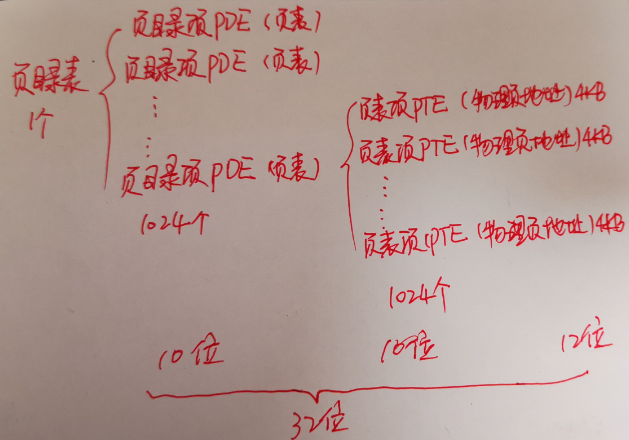 页目录表
1个
页目录项PDE (页表)
页目录项PDE (页表)
页目录项PDE (页表)
1024个
页表项PTE (物理页地址) 4KB
页表项PTE (物理页地址) 4KB
页表项PTE (物理页地址) 4KB
1024个
10位 10位 12位
32位